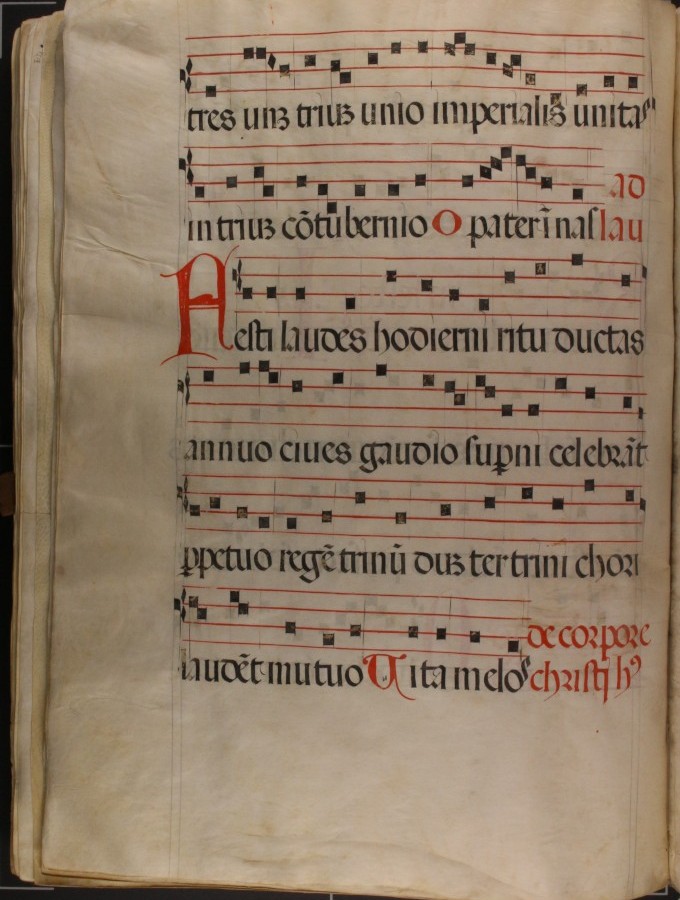 tres unꝫ triuꝫ unio imperialis unitas
ad
in triuꝫ cōtubernio O pater ī nas lau
Festi laudes hodierni ritu ductas
annuo ciues gaudio suꝑni celebrāt
ꝑpetuo regē trinū duꝫ ter trini chori
de corpore
laudēt mutuo Vita in elos christi hꝰ